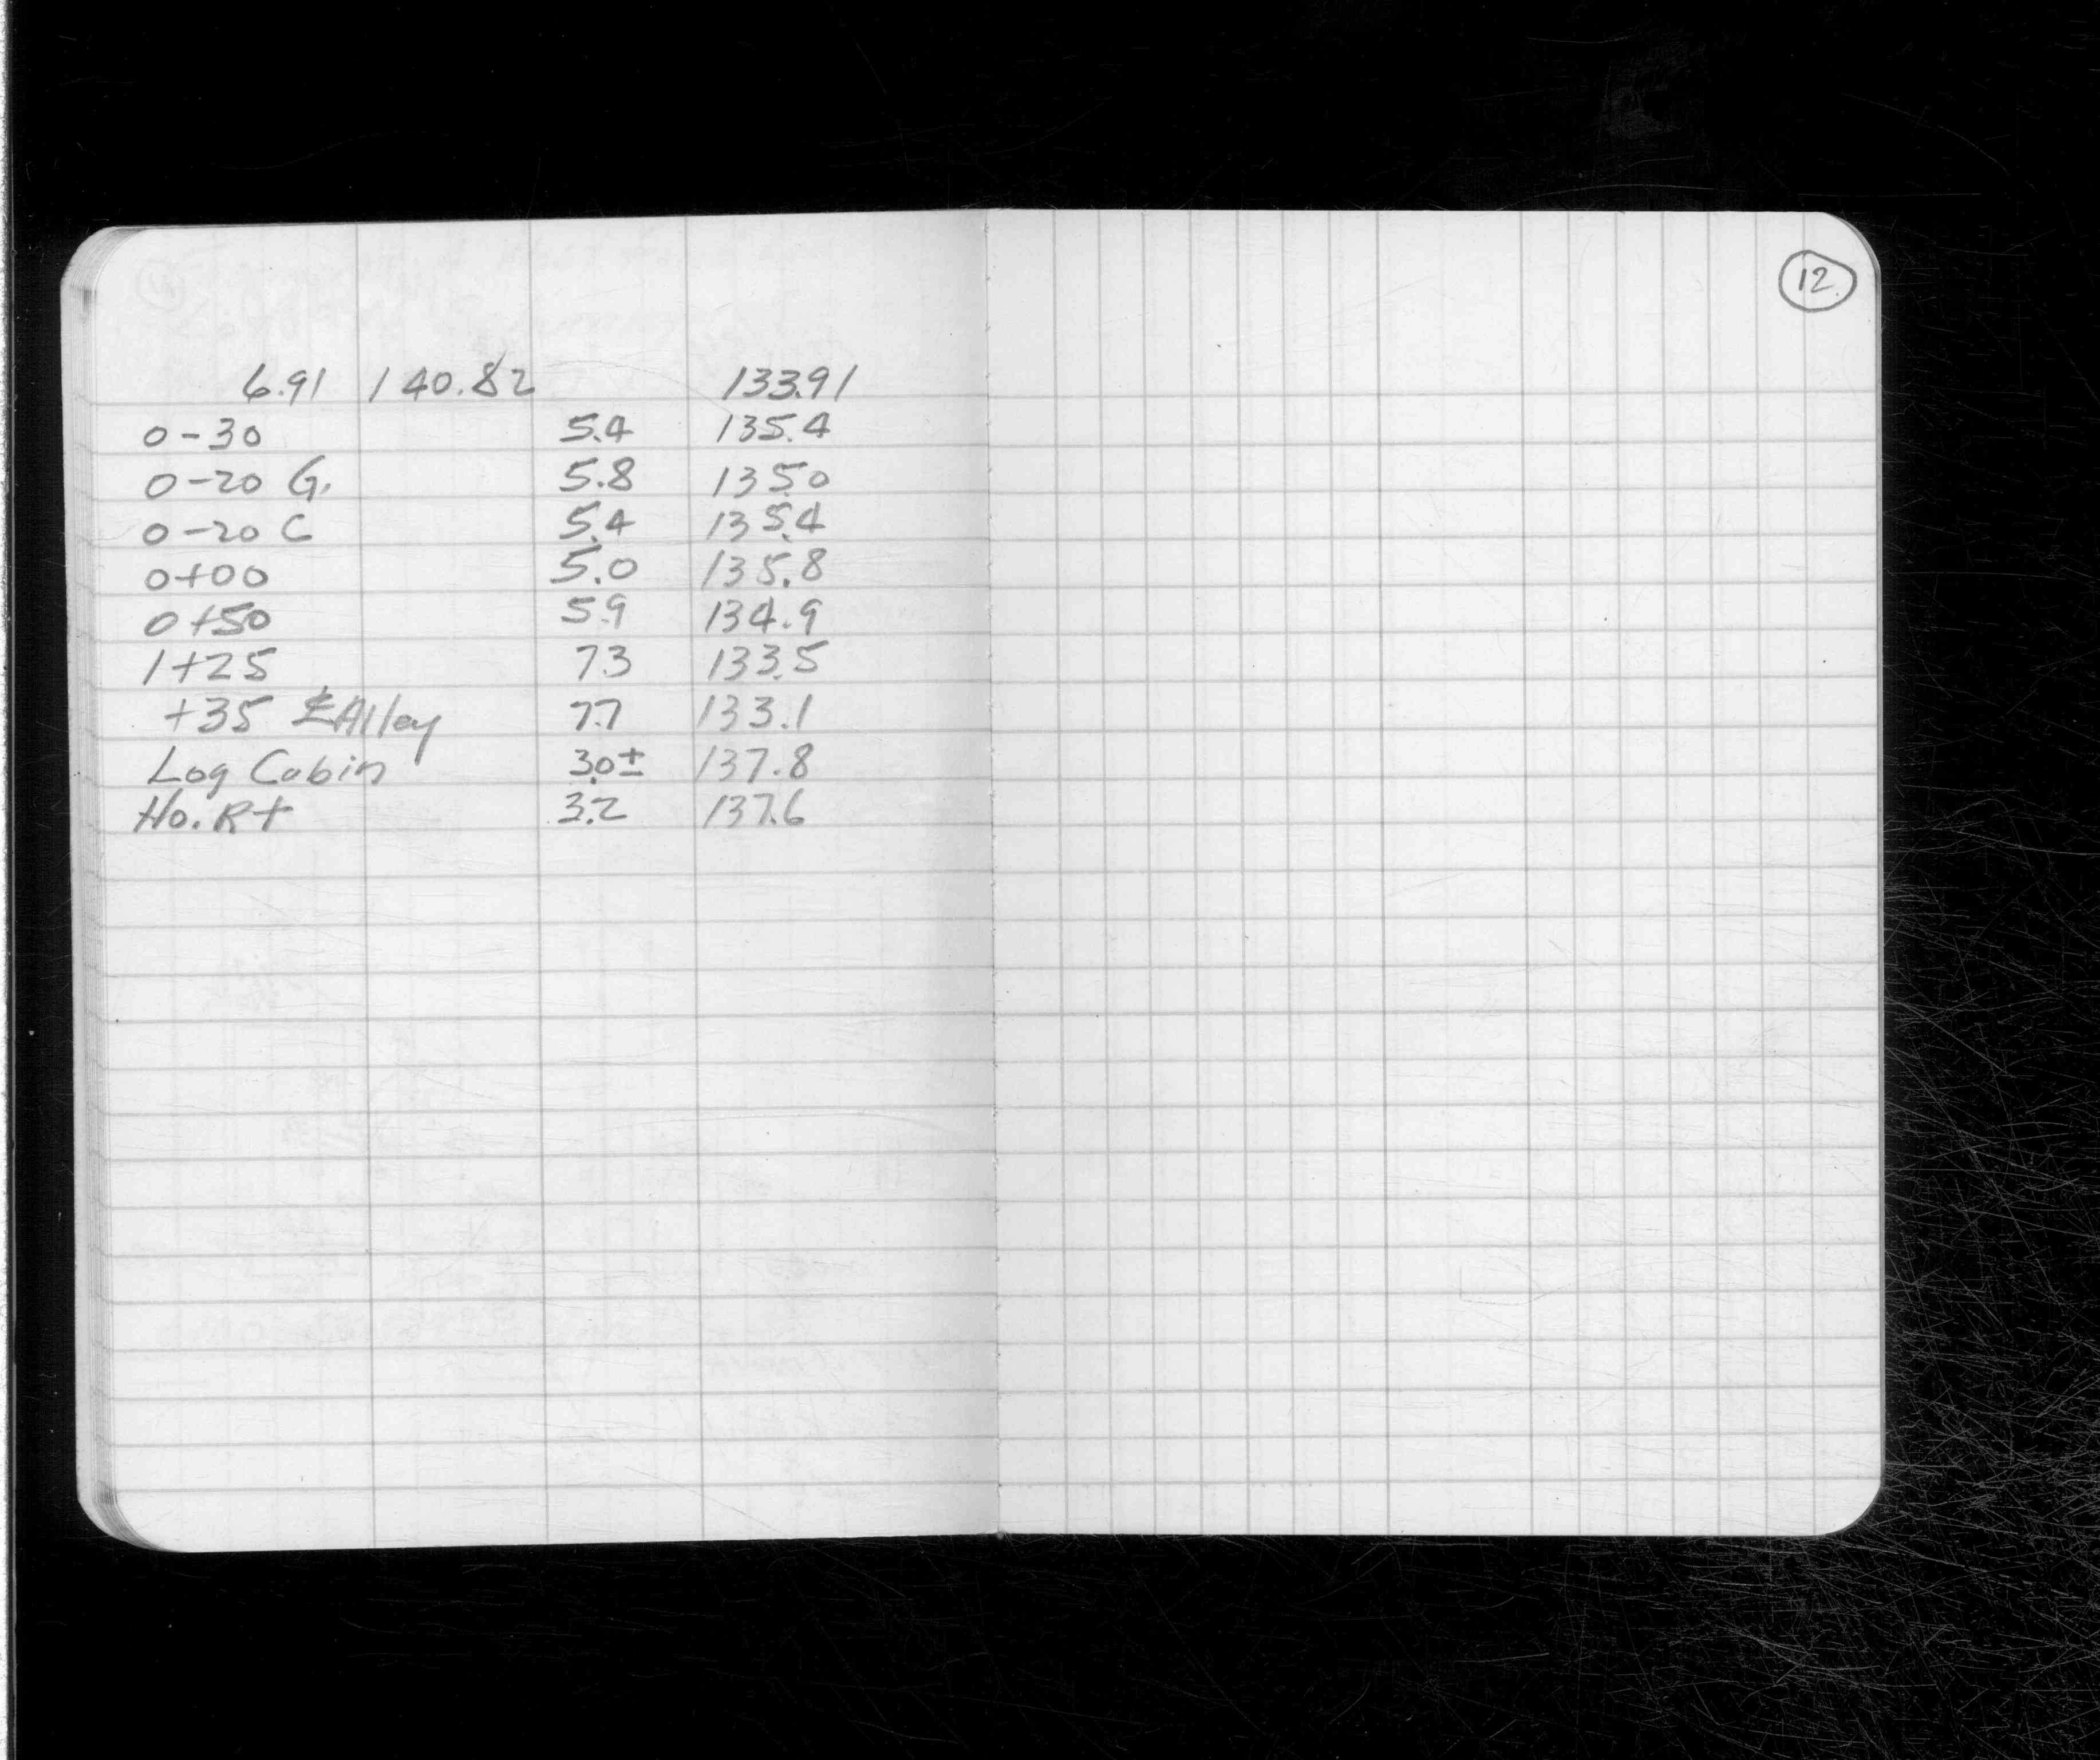 12.
6.91 140.82 133.91
0-30 5.4 135.4
0-20 G. 5.8 135.0
0-20 C 5.4 135.4
0+00 5.0 135.8
0+50 5.9 134.9
1+25 7.3 133.5
+35 ℄ Alley 7.7 133.1
Log Cabin 3.0± 137.8
Ho. Rt 3.2 137.6